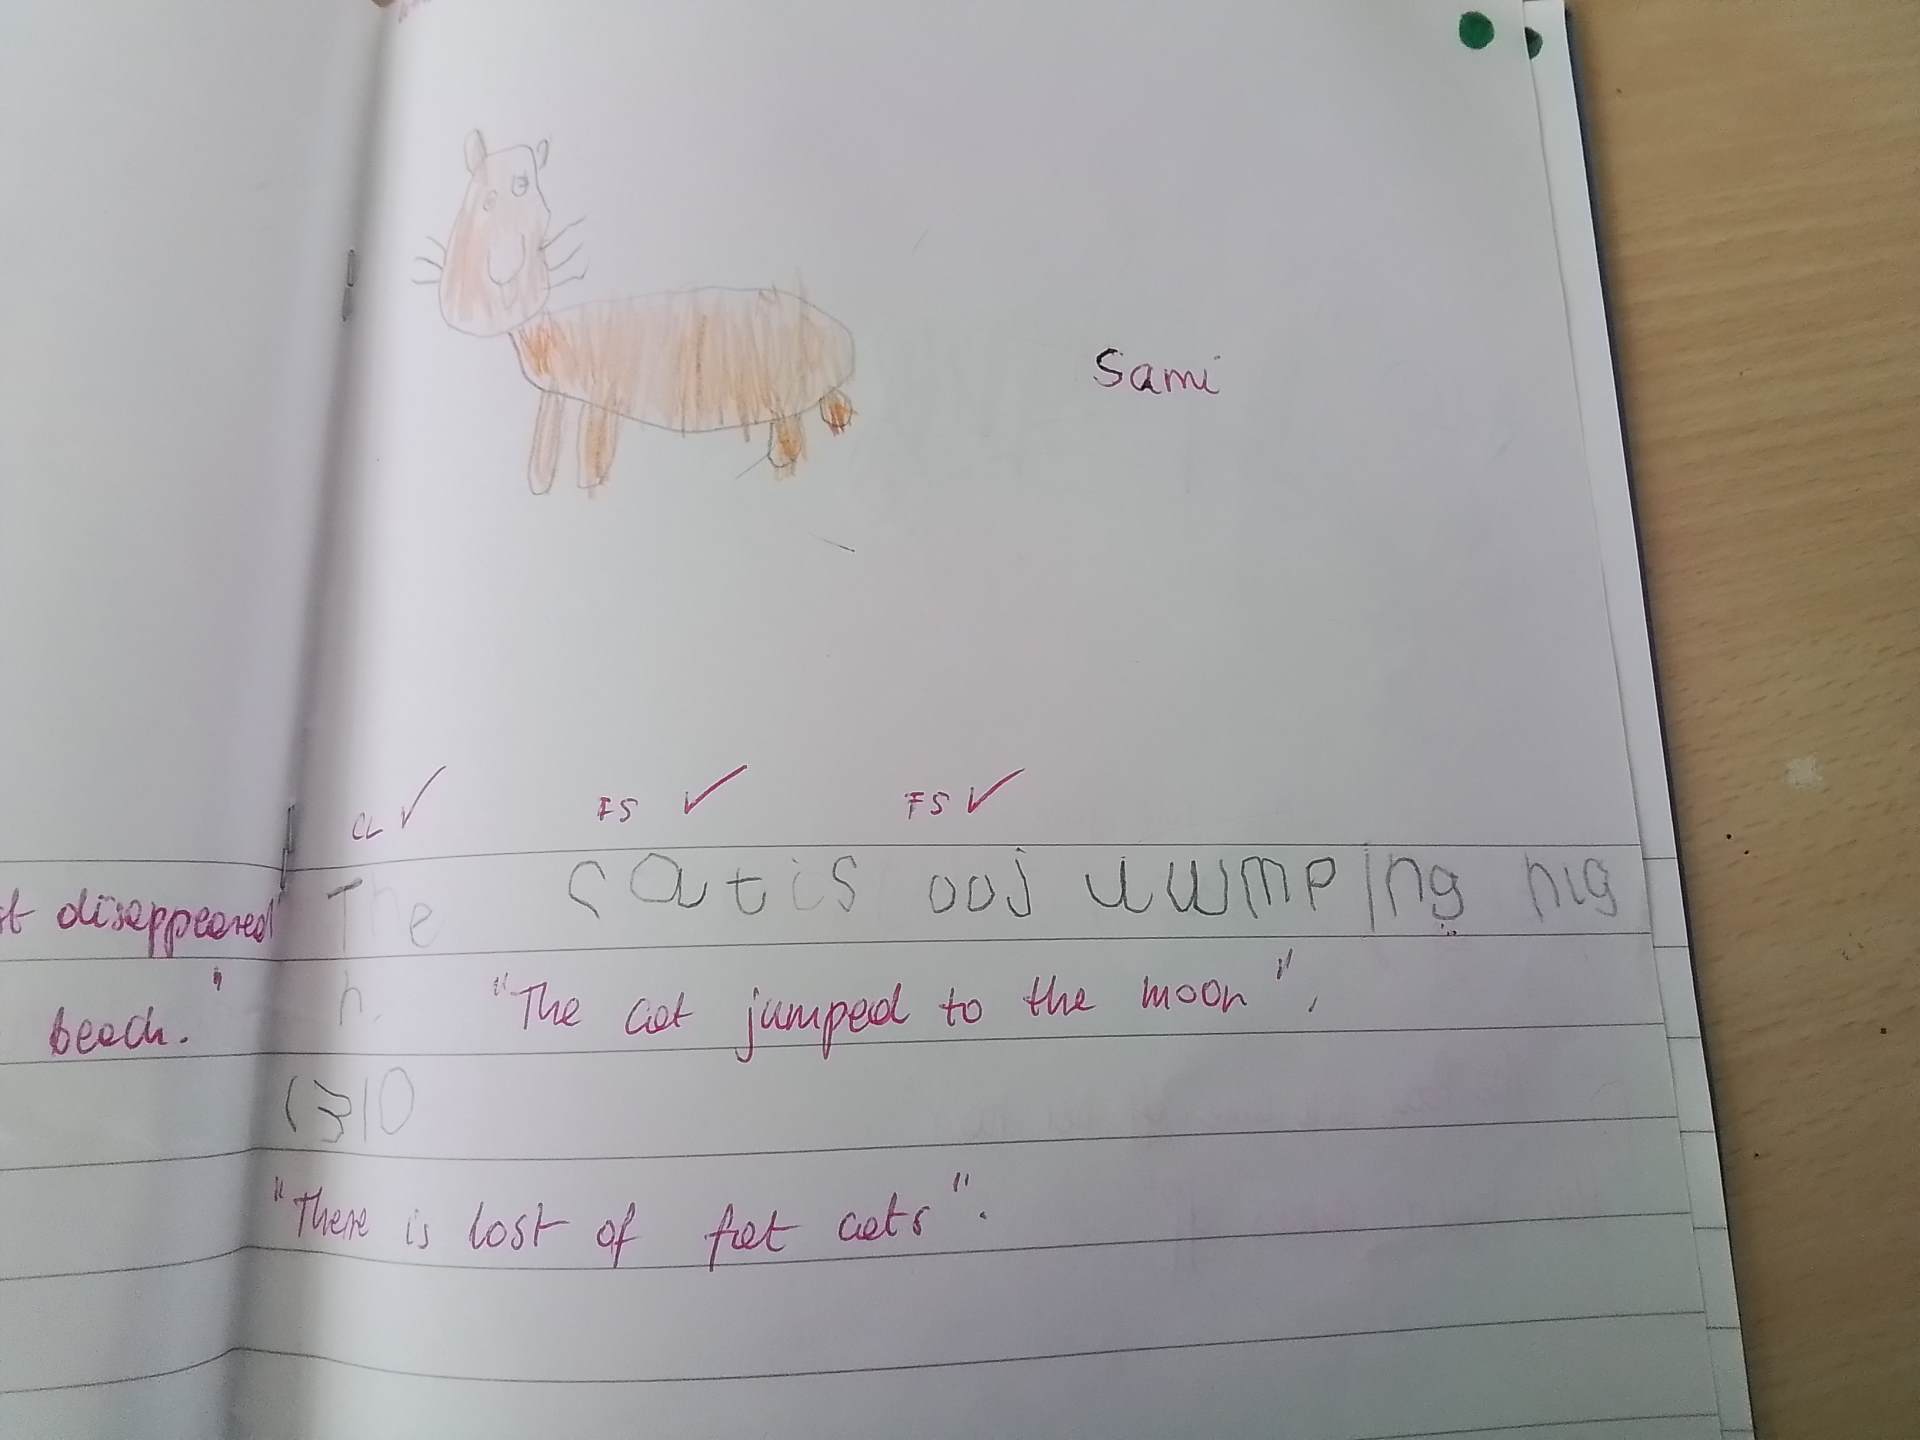 Sami
CL ✓ FS ✓ FS ✓
disappeared"
The cat is ooj uwmping hig
h. "The cat jumped to the moon".
beach."
"There is lost of fat cats".